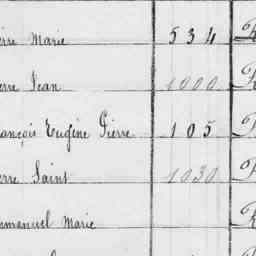 erre Marie 534
erre Jean 1000
rançois Eugène Pierre 105
erre Saint 1030
mmanuel Marie